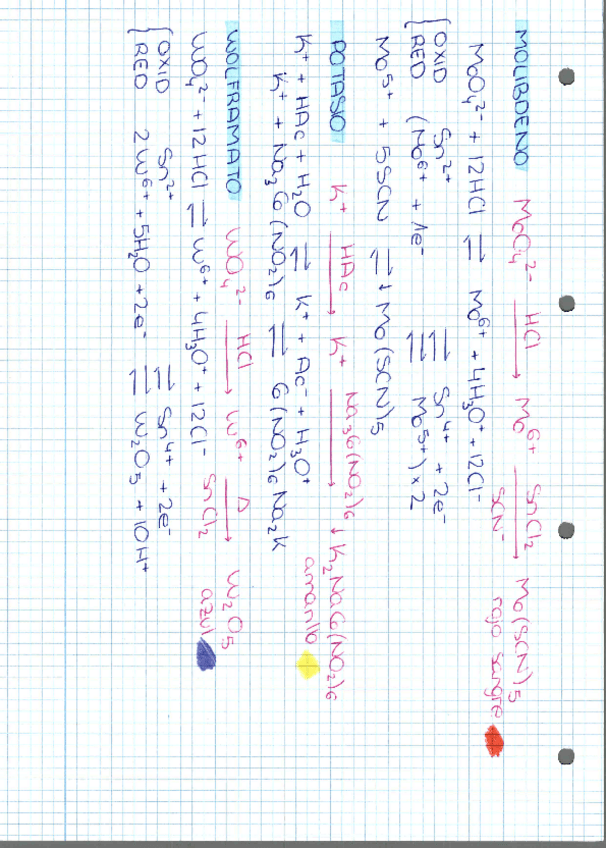 MOLIBDENO MoO₄²⁻ —HCl→ Mo⁶⁺ —SnCl₂ SCN⁻→ Mo(SCN)₅ rojo sangre
MoO₄²⁻ + 12HCl ⇌ Mo⁶⁺ + 4H₃O⁺ + 12Cl⁻
{OXID Sn²⁺ ⇌ Sn⁴⁺ + 2e⁻
{RED (Mo⁶⁺ + 1e⁻ ⇌ Mo⁵⁺) × 2
Mo⁵⁺ + 5SCN ⇌ ↓ Mo(SCN)₅
POTASIO K⁺ —HAc→ K⁺ —Na₃Co(NO₂)₆→ ↓ K₂NaCo(NO₂)₆ amarillo
K⁺ + HAc + H₂O ⇌ K⁺ + Ac⁻ + H₃O⁺
K⁺ + Na₃Co(NO₂)₆ ⇌ Co(NO₂)₆Na₂K
WOLFRAMATO WO₄²⁻ —HCl→ W⁶⁺ —Δ SnCl₂→ W₂O₅ azul
WO₄²⁻ + 12HCl ⇌ W⁶⁺ + 4H₃O⁺ + 12Cl⁻
{OXID Sn²⁺ ⇌ Sn⁴⁺ + 2e⁻
{RED 2W⁶⁺ + 5H₂O + 2e⁻ ⇌ W₂O₅ + 10H⁺